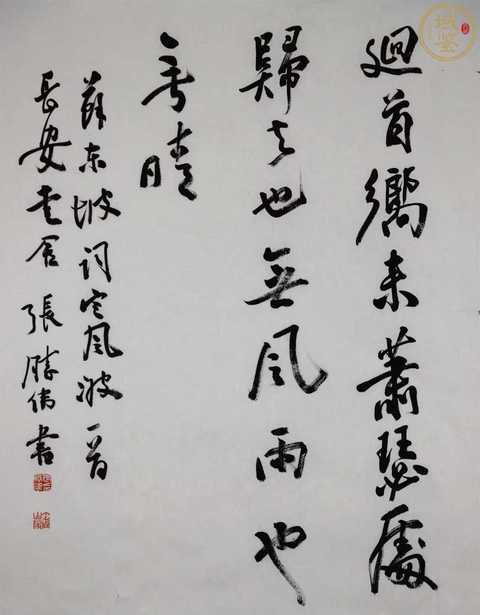 迴首嚮来蕭瑟處
歸去也無風雨也
無晴
蘇东坡词定風波一首
長安 張勝偉書
域鉴